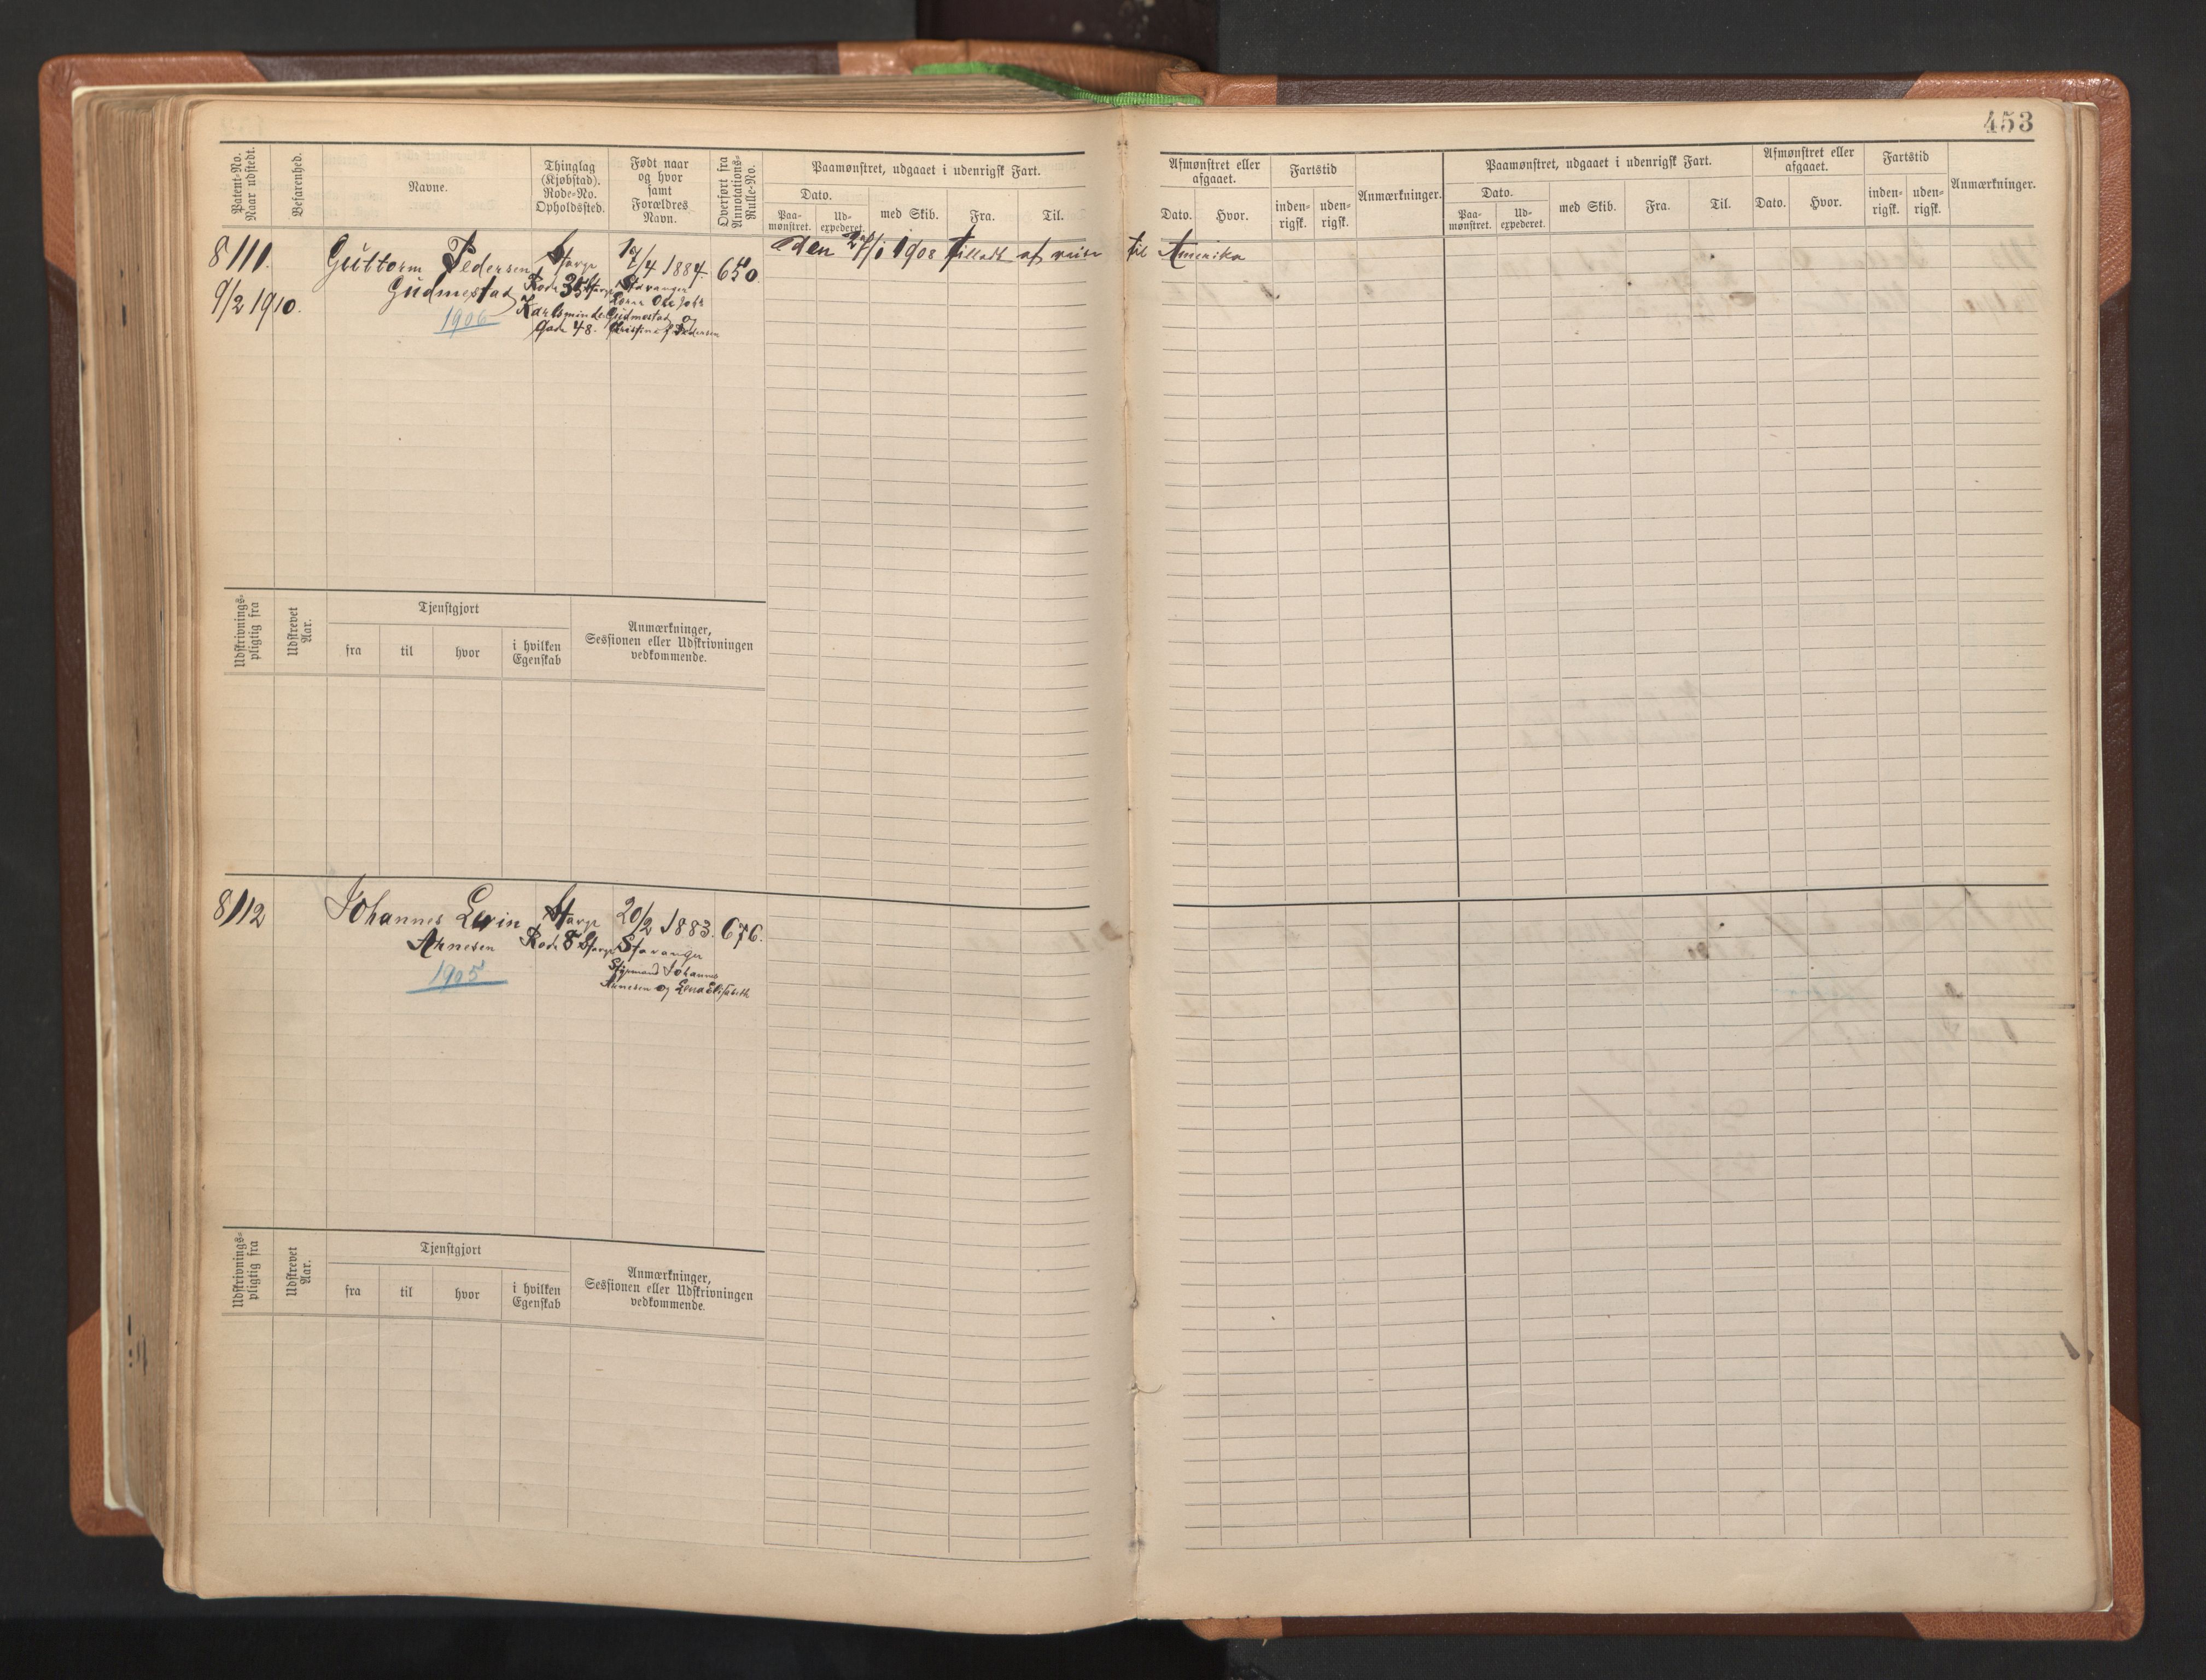 453
Patent-No.
Naar udstedt.
Befarenhed.
Navne.
Thinglag
(Kjøbstad).
Rode-No.
Opholdssted.
Født naar
og hvor
samt
Forældres
Navn.
Overført fra
Annotations-
Rulle-No.
Paamønstret, udgaaet i udenrigsk Fart.
Dato.
Paa-
mønstret.
Ud-
expederet.
med Skib.
Fra.
Til.
Afmønstret eller
afgaaet.
Dato.
Hvor.
Fartstid
inden-
rigsk.
uden-
rigsk.
Anmærkninger.
Paamønstret, udgaaet i udenrigsk Fart.
Dato.
Paa-
mønstret.
Ud-
expederet.
med Skib.
Fra.
Til.
Afmønstret eller
afgaaet.
Dato.
Hvor.
Fartstid
inden-
rigsk.
uden-
rigsk.
Anmærkninger.
8111.
9/2 1910.
Guttorm Pedersen
Gudmestad
1906
Stavgr
Rode 35 Stavgr
Karlsminde
Gade 48.
/4 1884.
Stavanger
Ole Joh
Gudmestad og
Christine f Pedersen
650.
den /1 1908 tilladt at reise til Amerika
Udskrivnings-
pligtig fra
Udskrevet
Aar.
Tjenstgjort
fra
til
hvor
i hvilken
Egenskab
Anmærkninger,
Sessionen eller Udskrivningen
vedkommende.
8112
Johannes Ervin
Arnesen
1905
Stavgr
Rode 8 Stavgr
20/2 1883.
Stavanger
Styrmand Johannes
Arnesen og Lena Elisabeth
676.
Udskrivnings-
pligtig fra
Udskrevet
Aar.
Tjenstgjort
fra
til
hvor
i hvilken
Egenskab
Anmærkninger,
Sessionen eller Udskrivningen
vedkommende.